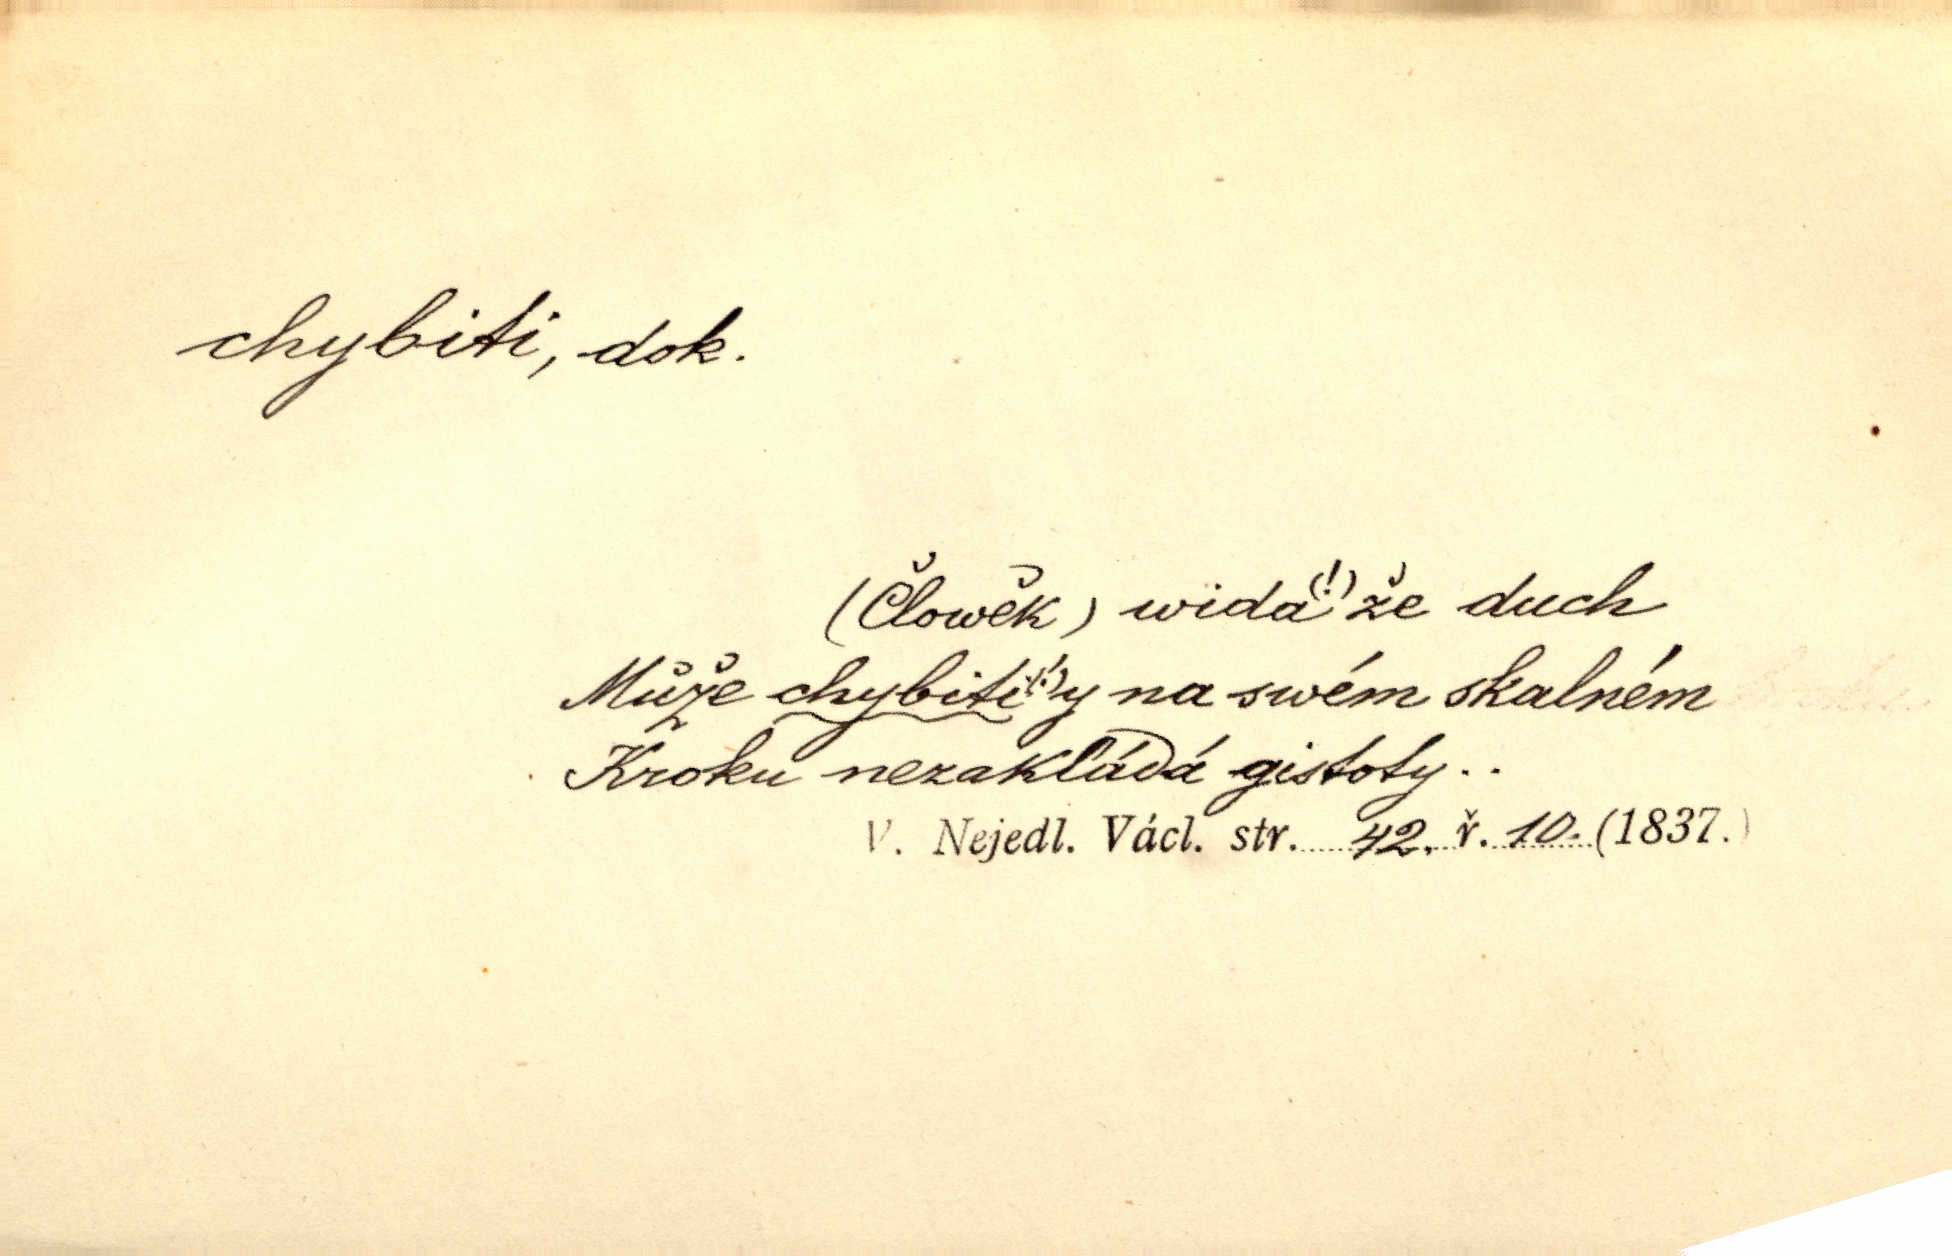 chybiti, dok.
(Člowěk) widá(!) že duch
Může chybiti(!) y na swém skalném
Kroku nezakládá gistoty..
V. Nejedl. Václ. str. 42. ř. 10. (1837.)